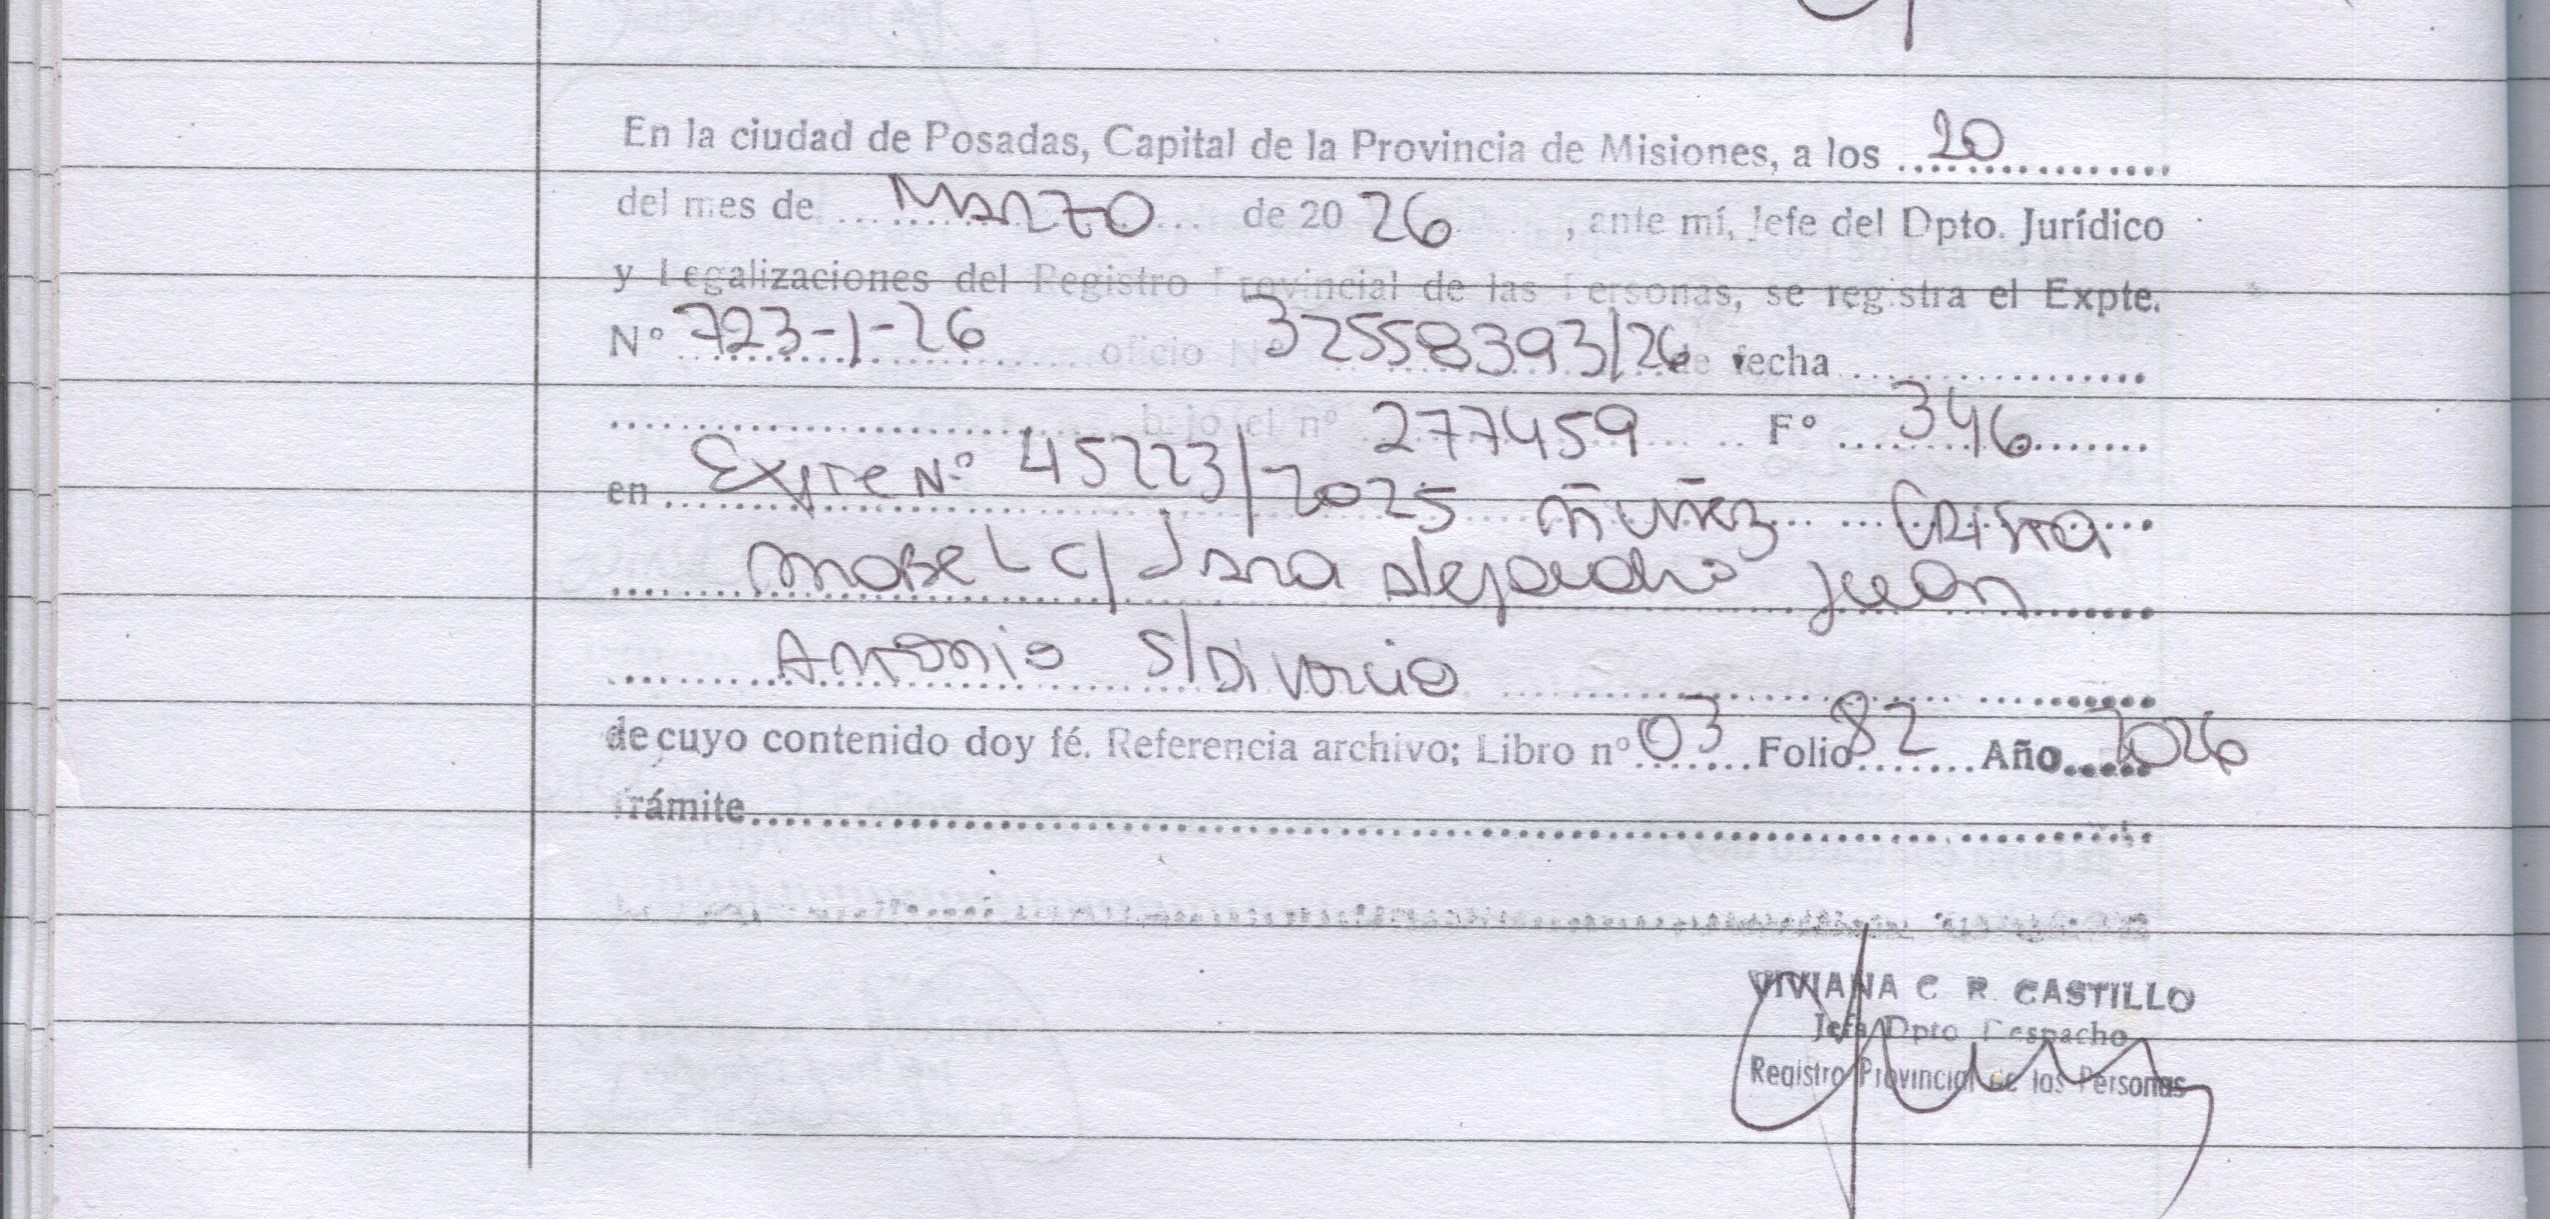 En la ciudad de Posadas, Capital de la Provincia de Misiones, a los 20
del mes de Marzo de 20 26 , ante mí, Jefe del Dpto. Jurídico
y Legalizaciones del Registro Provincial de las Personas, se registra el Expte.
Nº 723-1-26 oficio Nº 32558393/26 de fecha
bajo el nº 277459 Fº 346
en Expte Nº 45223/2025 Ñuñez Cristia
Mabel c/ Jara Alejandro Juan
Antonio S/Divorcio
de cuyo contenido doy fé. Referencia archivo; Libro nº 03 Folio 82 Año 2026
Trámite
VIVIANA C R CASTILLO
Jefa Dpto Despacho
Registro Provincial de las Personas